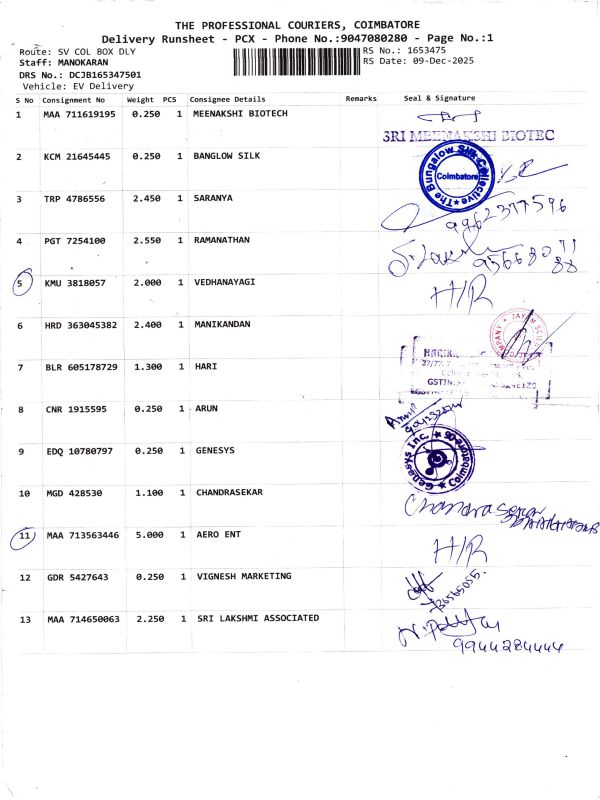 THE PROFESSIONAL COURIERS, COIMBATORE
Delivery Runsheet - PCX - Phone No.:9047080280 - Page No.:1
Route: SV COL BOX DLY RS No.: 1653475
Staff: MANOKARAN RS Date: 09-Dec-2025
DRS No.: DCJB165347501
Vehicle: EV Delivery
S No Consignment No Weight PCS Consignee Details Remarks Seal & Signature
1 MAA 711619195 0.250 1 MEENAKSHI BIOTECH
SRI MEENAKSHI BIOTEC
2 KCM 21645445 0.250 1 BANGLOW SILK
The Bungalow Silk Collective
Coimbatore
3 TRP 4786556 2.450 1 SARANYA
9962377596
4 PGT 7254100 2.550 1 RAMANATHAN
5 KMU 3818057 2.000 1 VEDHANAYAGI H/R
6 HRD 363045382 2.400 1 MANIKANDAN
7 BLR 605178729 1.300 1 HARI
GSTIN
8 CNR 1915595 0.250 1 ARUN
9 EDQ 10780797 0.250 1 GENESYS
Genesys Inc. Coimbatore
10 MGD 428530 1.100 1 CHANDRASEKAR
Chandrasekar
11 MAA 713563446 5.000 1 AERO ENT H/R
12 GDR 5427643 0.250 1 VIGNESH MARKETING
13 MAA 714650063 2.250 1 SRI LAKSHMI ASSOCIATED
9944284444